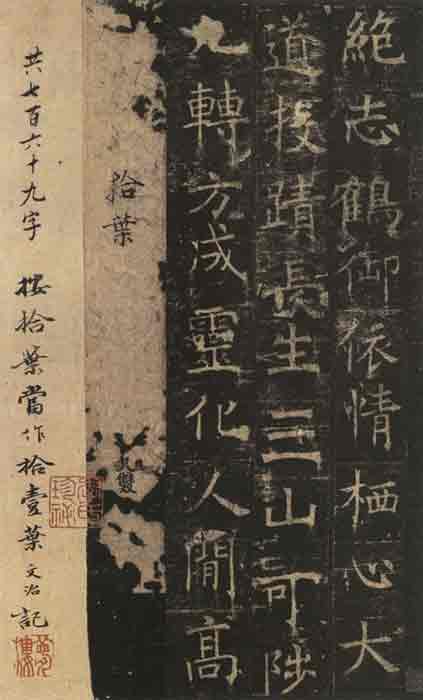 絶志鶴御依情栖心大
道投蹟長生三山可陟
九轉方成靈化人間高
拾葉
共七百六十九字 按拾葉當作拾壹葉 文治記